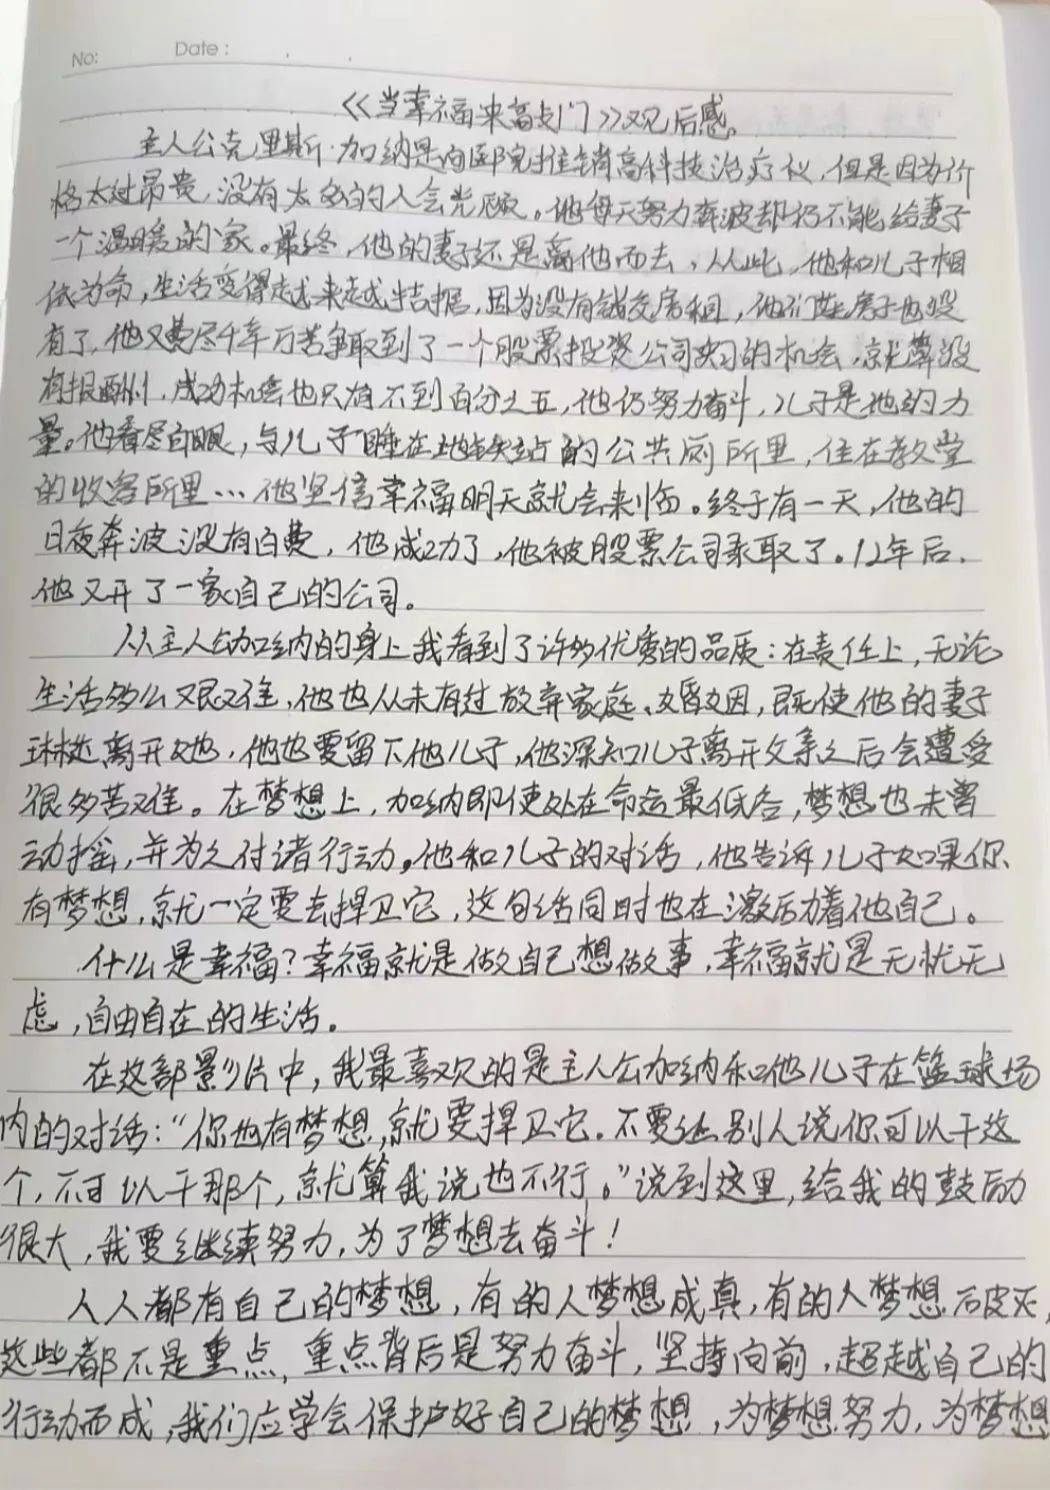 No:
Date:
《当幸福来敲门》观后感
主人公克里斯·加纳是向医院推销高科技治疗仪，但是因为价
格太过昂贵，没有太多的人会光顾。他每天努力奔波却仍不能给妻子
一个温暖的家。最终，他的妻子还是离他而去，从此，他和儿子相
依为命，生活变得越来越拮据，因为没有钱交房租，他们连房子也没
有了，他又费尽千辛万苦争取到了一个股票投资公司实习的机会，就算没
有报酬，成功机会也只有不到百分之五，他仍努力奋斗，儿子是他的力
量。他看尽白眼，与儿子睡在地铁站的公共厕所里，住在教堂
的收容所里…他坚信幸福明天就会来临。终于有一天，他的
日夜奔波没有白费，他成功了，他被股票公司录取了。12年后，
他又开了一家自己的公司。
从主人公加纳的身上我看到了许多优秀的品质：在责任上，无论
生活多么艰难，他也从未有过放弃家庭、婚姻，既使他的妻子
琳达离开她，他也要留下他儿子，他深知儿子离开父亲之后会遭受
很多苦难。在梦想上，加纳即使处在命运最低谷，梦想也未曾
动摇，并为之付诸行动。他和儿子的对话，他告诉儿子如果你
有梦想，就一定要去捍卫它，这句话同时也在激励着他自己。
什么是幸福？幸福就是做自己想做事，幸福就是无忧无
虑，自由自在的生活。
在这部影片中，我最喜欢的是主人公加纳和他儿子在篮球场
内的对话：“你也有梦想，就要捍卫它。不要让别人说你可以干这
个，不可以干那个，就算我说也不行。”说到这里，给我的鼓励
很大，我要继续努力，为了梦想去奋斗！
人人都有自己的梦想，有的人梦想成真，有的人梦想破灭，
这些都不是重点，重点背后是努力奋斗，坚持向前，超越自己的
行动而成，我们应学会保护好自己的梦想，为梦想努力，为梦想